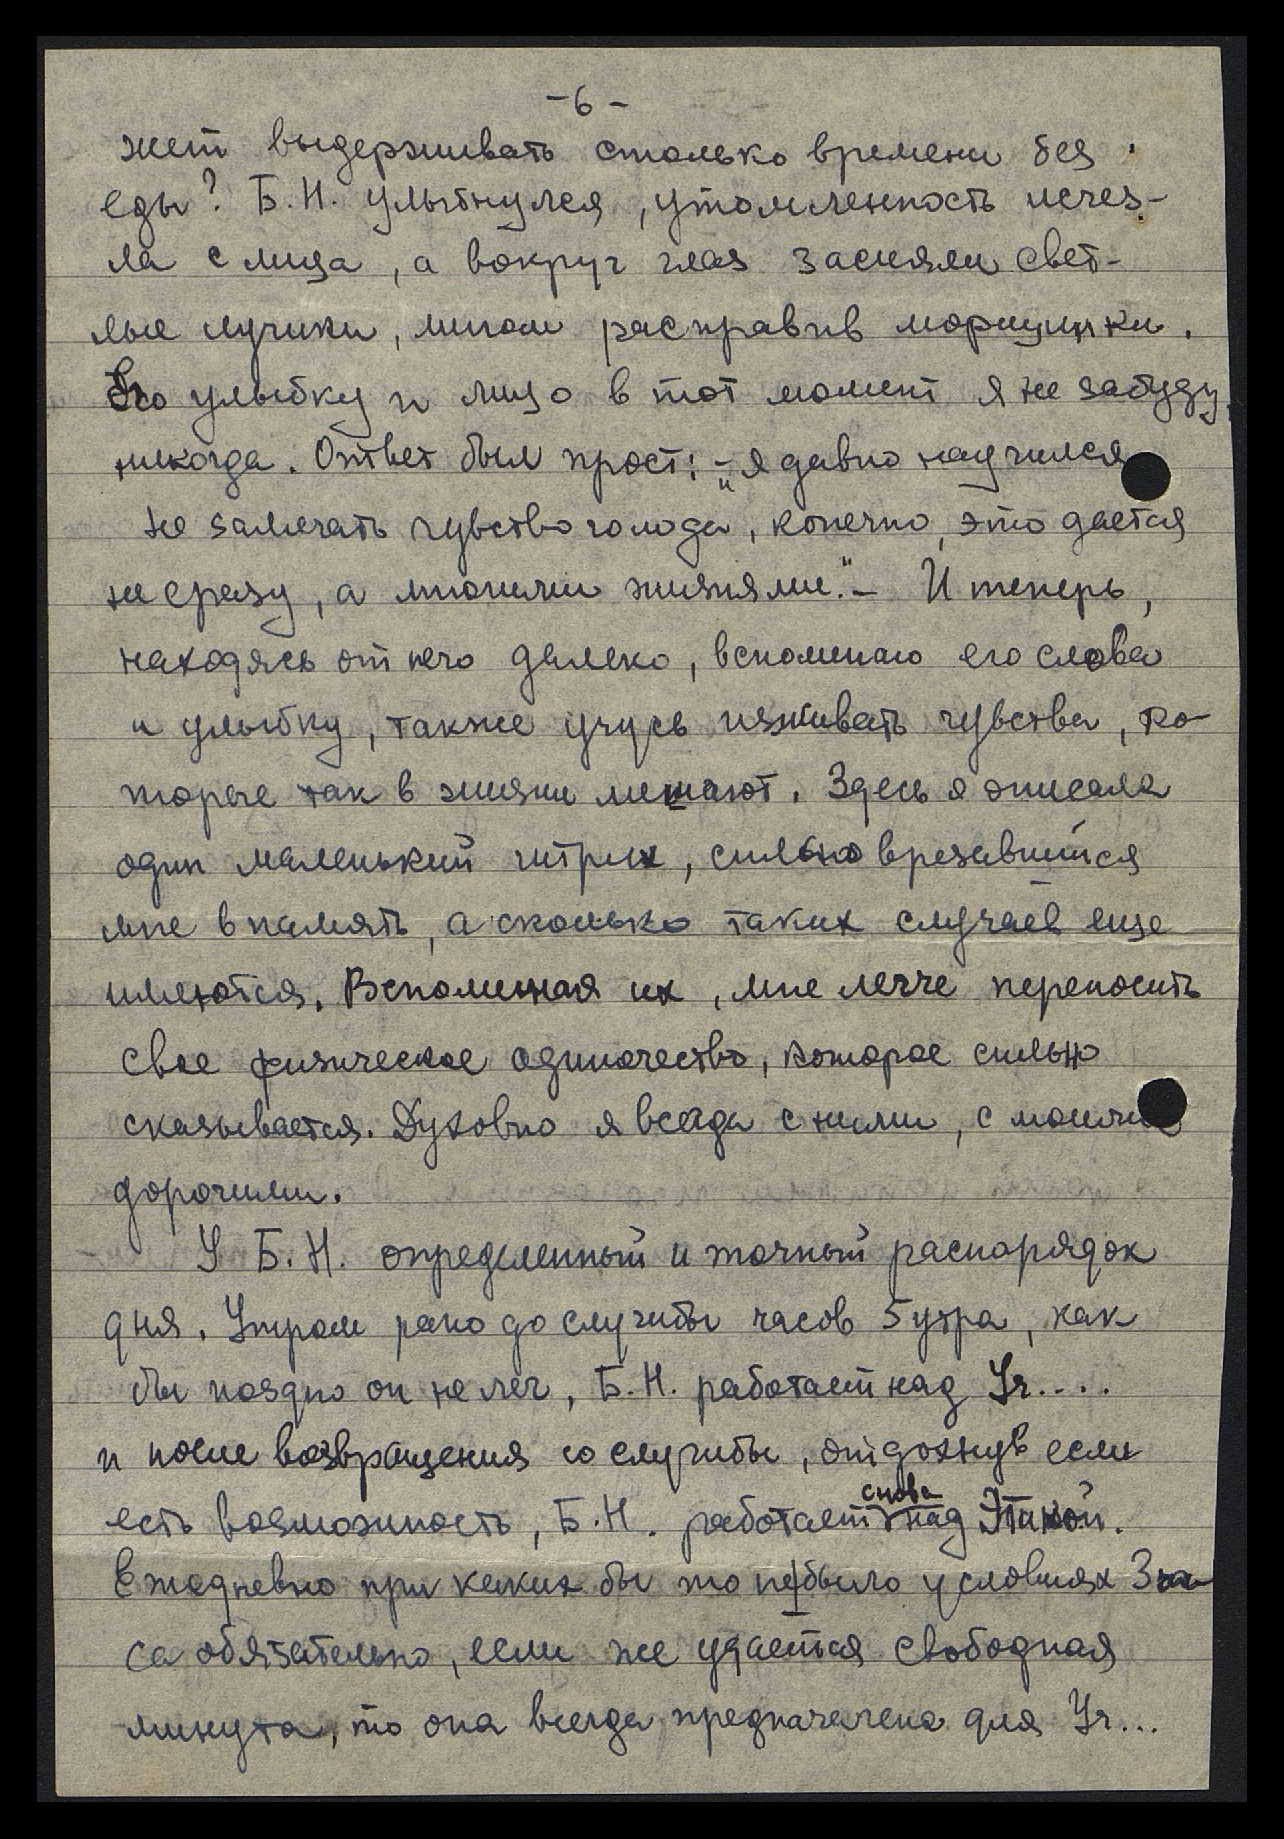 -6-
жет выдерживать столько времени без
еды? Б.Н. улыбнулся, утомленность исчез-
ла с лица, а вокруг глаз засияли свет-
лые лучики, мигом расправив морщинки.
Его улыбку и лицо в тот момент я не забуду
никогда. Ответ был прост: - „я давно научился
не замечать чувство голода, конечно, это дается
не сразу, а многими жизнями." - И теперь,
находясь от него далеко, вспоминаю его слова
и улыбку, также учусь изживать чувства, ко-
торые так в жизни мешают. Здесь я описала
один маленький штрих, сильно врезавшийся
мне в память, а сколько таких случаев еще
имеются. Вспоминая их, мне легче переносить
свое физическое одиночество, которое сильно
сказывается. Духовно я всегда с ними, с моими
дорогими.
У Б.Н. определенный и точный распорядок
дня. Утром рано до службы часов 5 утра, как
бы поздно он не лег, Б.Н. работает над Уч....
и после возвращения со службы, отдохнув если
есть возможность, Б.Н. работает снова над Этикой.
Ежедневно при каких бы то не было условиях 3 ча-
са обязательно, если же удается свободная
минута, то она всегда предназначена для Уч...